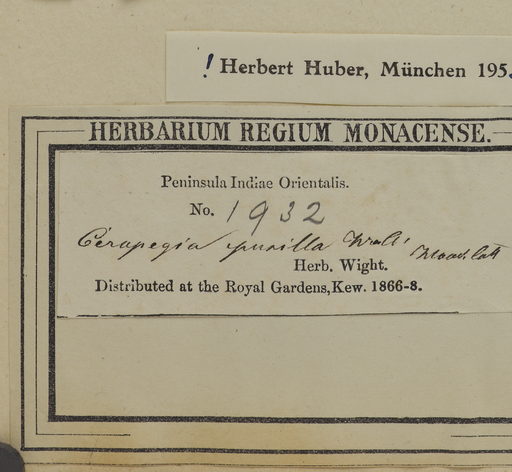 ! Herbert Huber, München 195
HERBARIUM REGIUM MONACENSE.
Peninsula Indiae Orientalis.
No. 1932
Ceropegia pusilla
Herb. Wight.
Distributed at the Royal Gardens, Kew. 1866-8.